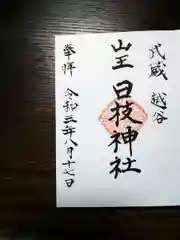 武蔵 越谷
山王 日枝神社
奉拝 令和三年八月十七日